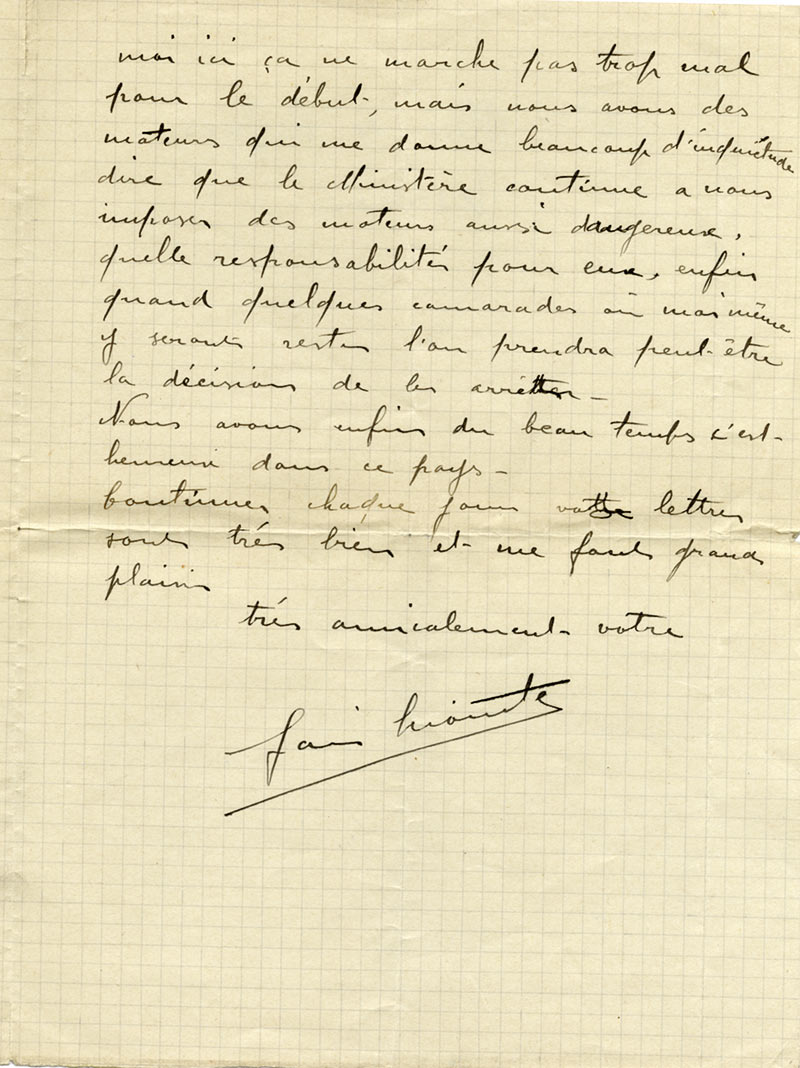 moi ici ça ne marche pas trop mal
pour le début, mais nous avons des
moteurs qui me donne beaucoup d'inquiétude
dire que le Ministère continue a nous
imposer des moteurs aussi dangereux,
quelle responsabilités pour eux, enfin
quand quelques camarades où moi même
y seront restés l'on prendra peut-être
la décision de les arrêtter -
Nous avons enfin du beau temps c'est
heureux dans ce pays -
Continuer chaque jour vos lettres
sont très bien et me font grands
plaisir
très amicalement votre